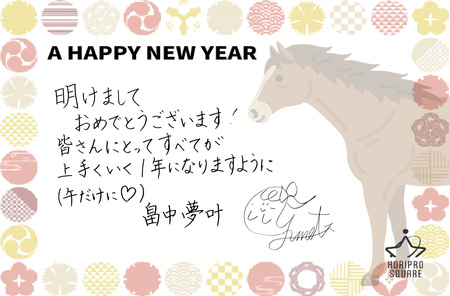 A HAPPY NEW YEAR
明けまして
おめでとうございます!
皆さんにとってすべてが
上手くいく1年になりますように
(午だけに♡)
畠中夢叶
HORIPRO
SQUARE